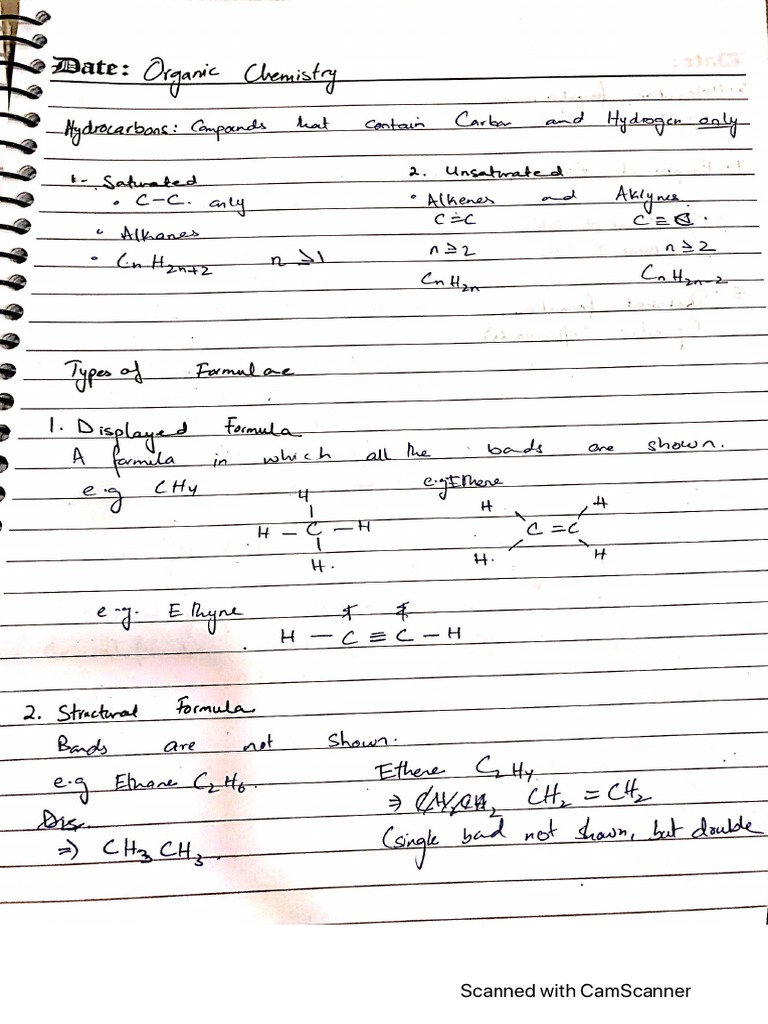 Date: Organic Chemistry
Hydrocarbons: Compounds that contain Carbon and Hydrogen only
1- Saturated
• C-C. only
• Alkanes
• CnH2n+2 n ≥ 1
2. Unsaturated
• Alkenes and Aklynes.
C=C C≡C.
n ≥ 2 n ≥ 2
CnH2n CnH2n-2
Types of Formulae
1. Displayed Formula
A formula in which all the bonds are shown.
e.g CH4 e.g Ethene
H H H
H - C - H C = C
H. H. H
e.g. Ethyne
H - C ≡ C - H
2. Structural Formula
Bonds are not shown.
e.g Ethane C2H6.
Dis.
⇒ CH3 CH3.
Ethene C2H4
⇒ CH2 = CH2
(single bond not shown, but double
Scanned with CamScanner